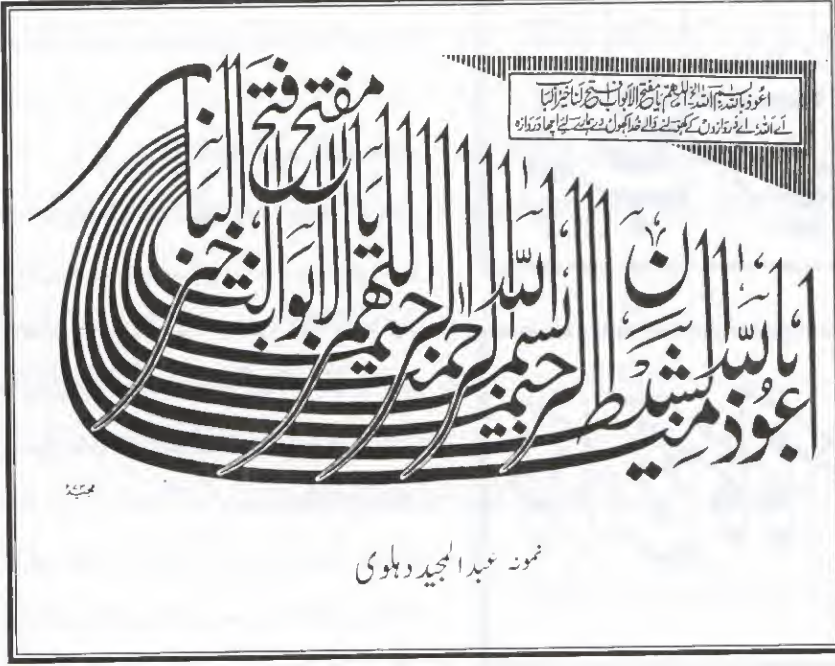 اعوذ باللہ بسم اللہ اللہم یا مفتح الابواب فتح لنا خیر الباب
اے اللہ اے دروازوں کے کھولنے والے خدا کھول دے ہمارے لیے اچھا دروازہ
اعوذ باللہ من الشیطن الرجیم بسم اللہ الرحمن الرحیم اللهم یا مفتح الابواب فتح لنا خیر الباب
نمونہ عبدالمجید دہلوی